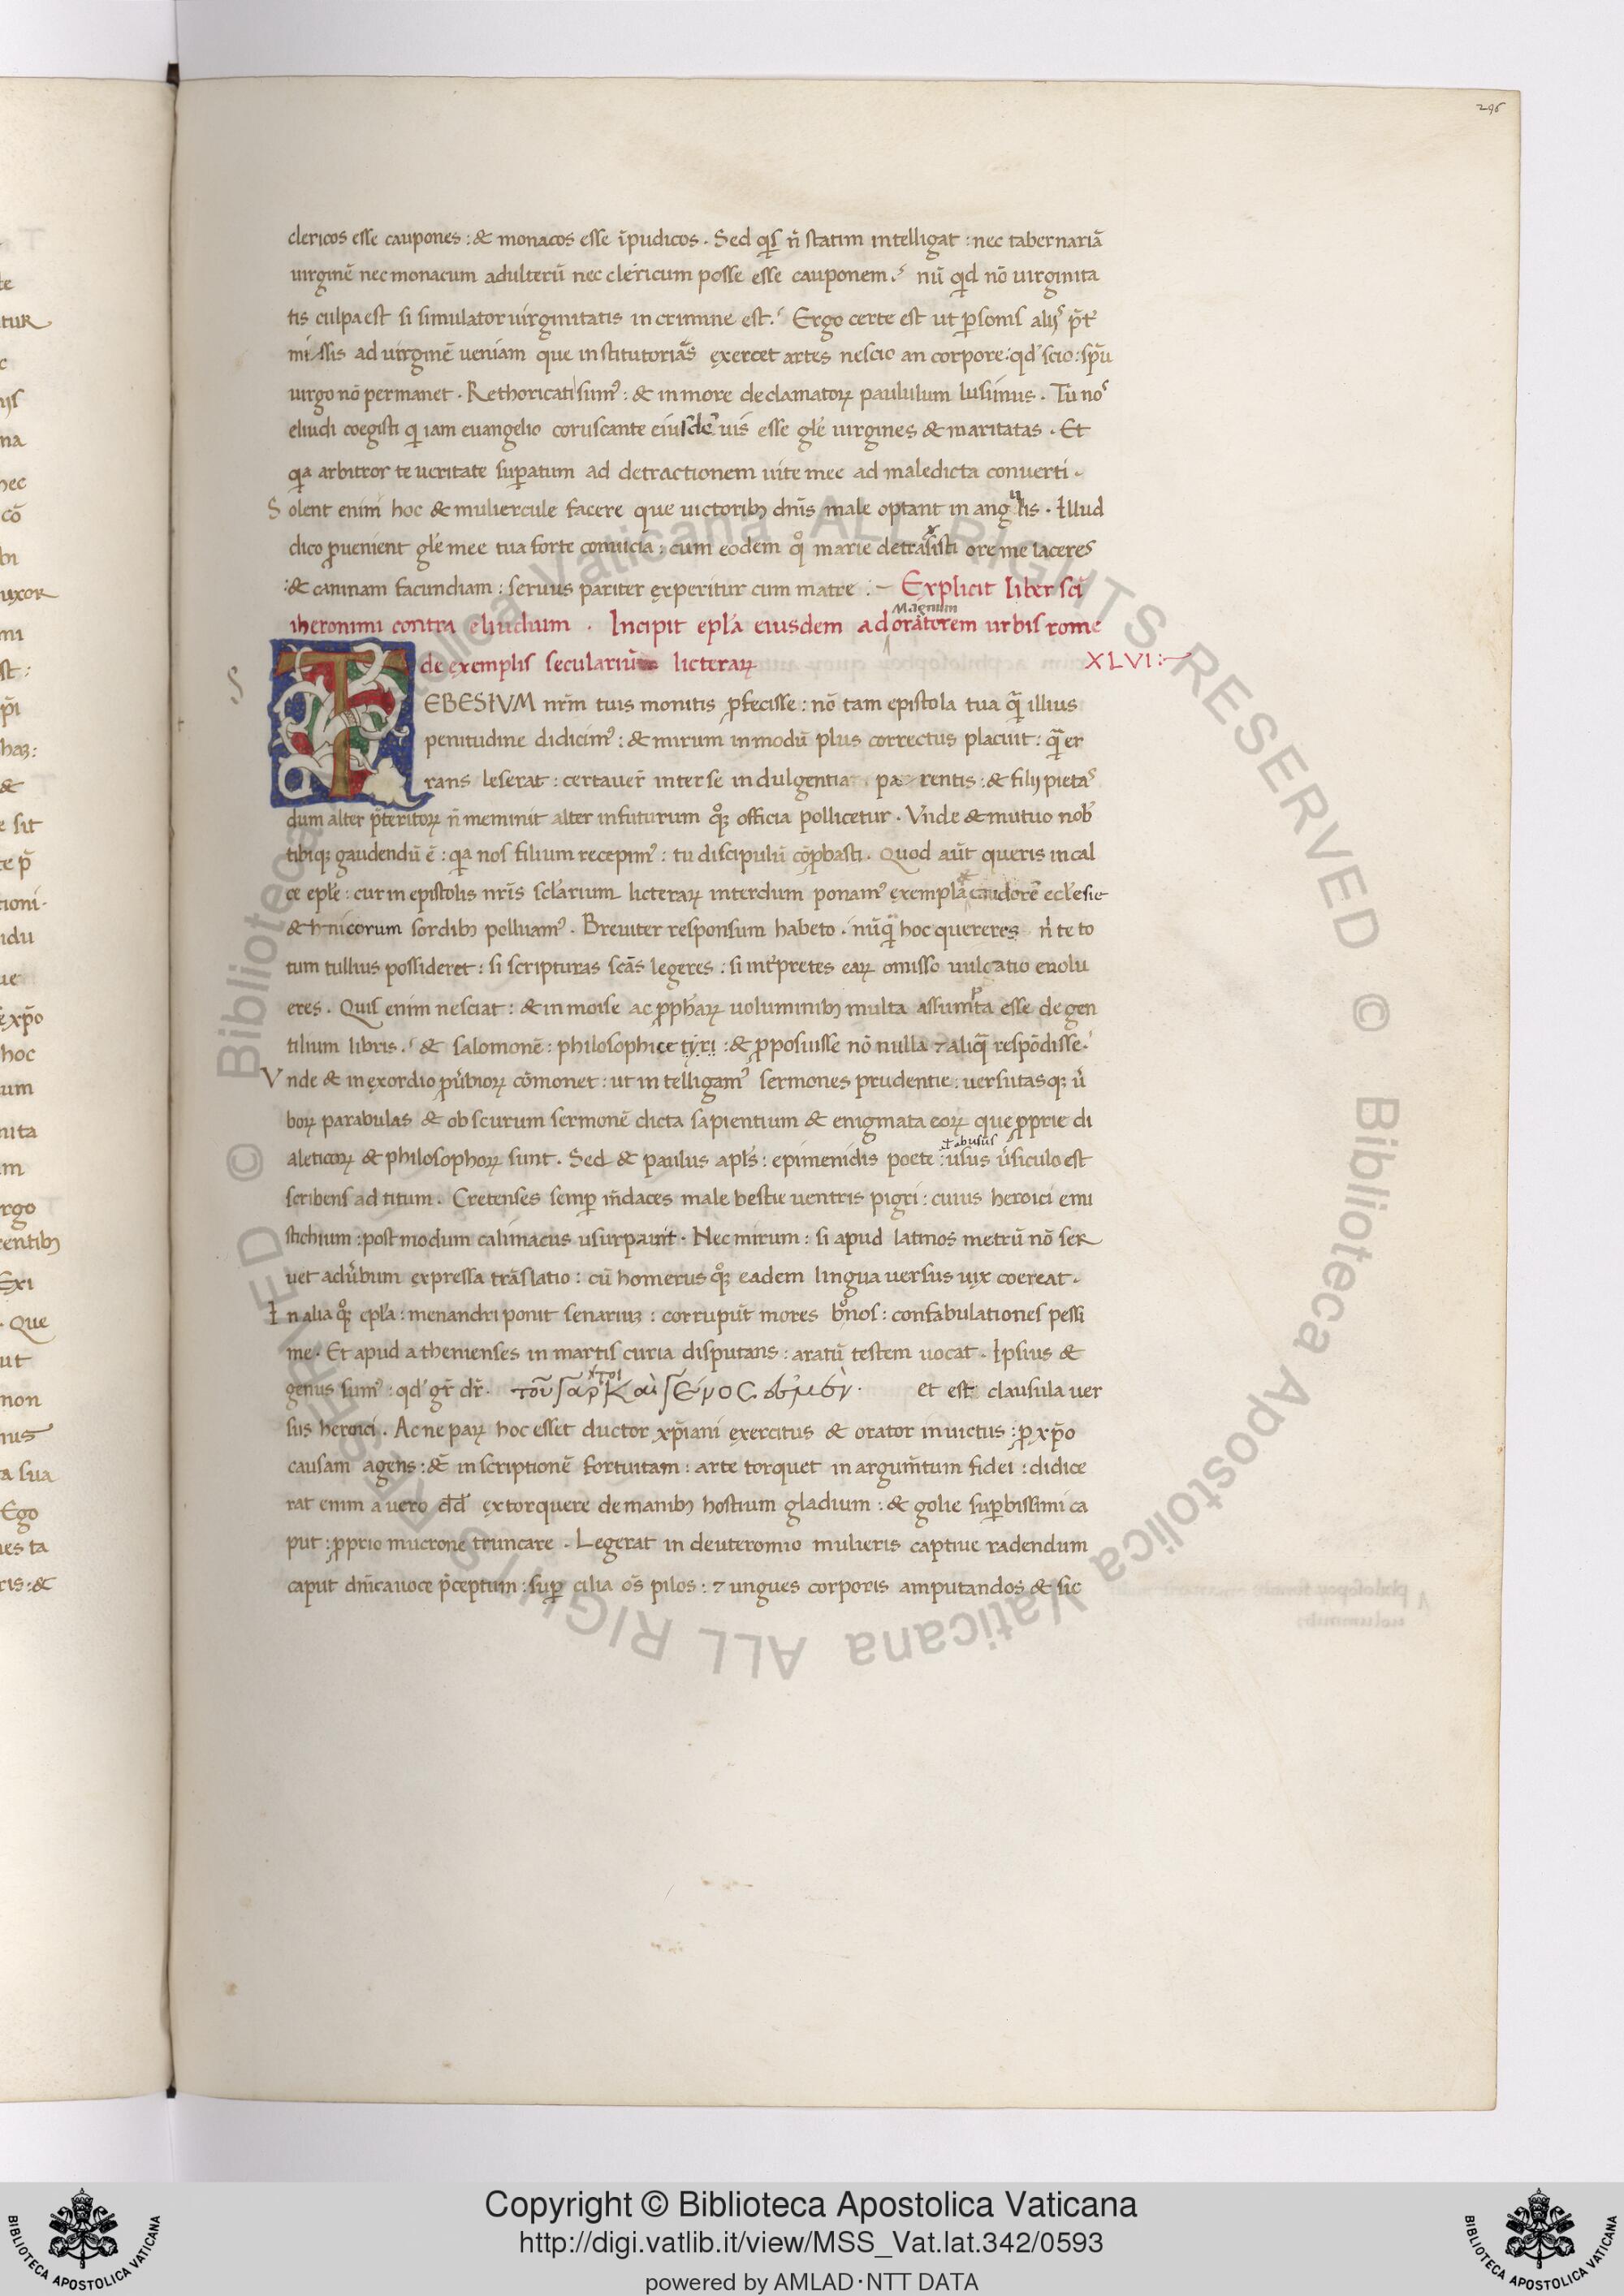 296
clericos esse caupones : & monacos esse ĩpudicos . Sed qs n̄ statim intelligat : nec tabernariā
uirginē nec monacum adulterū nec clericum posse esse cauponem . nū qd nō uirginita
tis culpa est si simulator uirginitatis in crimine est . Ergo certe est ut psonis aliis p̄t
missis ad uirginē ueniam que institutorias exercet artes nescio an corpore : qd scio : spū
uirgo nō permanet . Rethoricati sum9 : & in more declamatoꝝ paululum lusimus . Tu nos
eluidi coegisti q iam euangelio coruscante eiusdē uis esse gle uirgines & maritatas . Et
qa arbitror te ueritate supatum ad detractionem uite mee ad maledicta conuerti .
Solent enim hoc & muliercule facere que uictorib; dnis male optant in angulis . Illud
dico puenient gle mee tua forte conuicia : cum eodem quo marie detraxisti ore me laceres
: & caninam facundiam : seruus pariter experitur cum matre : Explicit liber sci
iheronimi contra eluidium . Incipit epla eiusdem ad magnum oratorem urbis rome
de exemplis seculariū licteraꝝ XLVI :
TEBESIVM nrm tuis monitis pfecisse : nō tam epistola tua q̄ illius
penitudine didicim9 : & mirum in modū plus correctus placuit : q̄ er
rans leserat : certauer̄ inter se indulgentia parentis : & filij pietas
dum alter p̄teritoꝝ n̄ meminit alter in futurum qq; officia pollicetur . Vnde & mutuo nob
tibiq; gaudendū ē : qa nos filium recepim9 : tu discipulū cōpbasti . Quod aūt queris in cal
ce eple : cur in epistolis nr̄is sclarium licteraꝝ interdum ponam9 exempla candorē eclesie
& hnicorum sordib; polluam9 . Breuiter responsum habeto . nūq̄ hoc quereres n̄ te to
tum tullius possideret : si scripturas scās legeres : si int̄pretes eaꝝ omisso uulcatio euolu
eres . Quis enim nesciat : & in moise ac pphaꝝ uoluminib; multa assumpta esse de gen
tilium libris . & salomonē : philosophice tyri : & pposuisse nō nulla ⁊ aliq̄ respōdisse .
Vnde & in exordio pūbioꝝ cōmonet : ut intelligam9 sermones prudentie : uersutasq; ū
boꝝ parabulas & obscurum sermonē dicta sapientium & enigmata eoꝝ que pprie di
aleticoꝝ & philosophoꝝ sunt . Sed & paulus apls : epimenidis poete : abusus usus ūsiculo est
scribens ad titum . Cretenses semp m̄daces male bestie uentris pigri : cuius heroici emi
stichium : postmodum calimacus usurpauit . Nec mirum : si apud latinos metrū nō ser
uet adūbum expressa trāslatio : cū homerus qq; eadem lingua uersus uix coereat .
In alia qq; epla : menandri ponit senarium : corrupūt mores bonos : confabulationes pessi
me . Et apud athenienses in martis curia disputans : aratū testem uocat . Ipsius &
genus sum9 : qd gr̄ dr̄ . et est clausula uer
sus heroici . Ac ne paꝝ hoc esset ductor xp̄iani exercitus & orator inuictus : p xp̄o
causam agens : & inscriptionē fortuitam : arte torquet in argum̄tum fidei : didice
rat enim a uero dd extorquere de manib; hostium gladium : & golie supbissimi ca
put : pprio mucrone truncare . Legerat in deuteromio mulieris captiue radendum
caput dnica uoce p̄ceptum : sup cilia os pilos : ⁊ ungues corporis amputandos & sic
© Biblioteca Apostolica Vaticana ALL RIGHTS RESERVED © Biblioteca Apostolica Vaticana ALL RIGHTS RESERVED
Copyright © Biblioteca Apostolica Vaticana
http://digi.vatlib.it/view/MSS_Vat.lat.342/0593
powered by AMLAD·NTT DATA
BIBLIOTECA APOSTOLICA VATICANA
BIBLIOTECA APOSTOLICA VATICANA